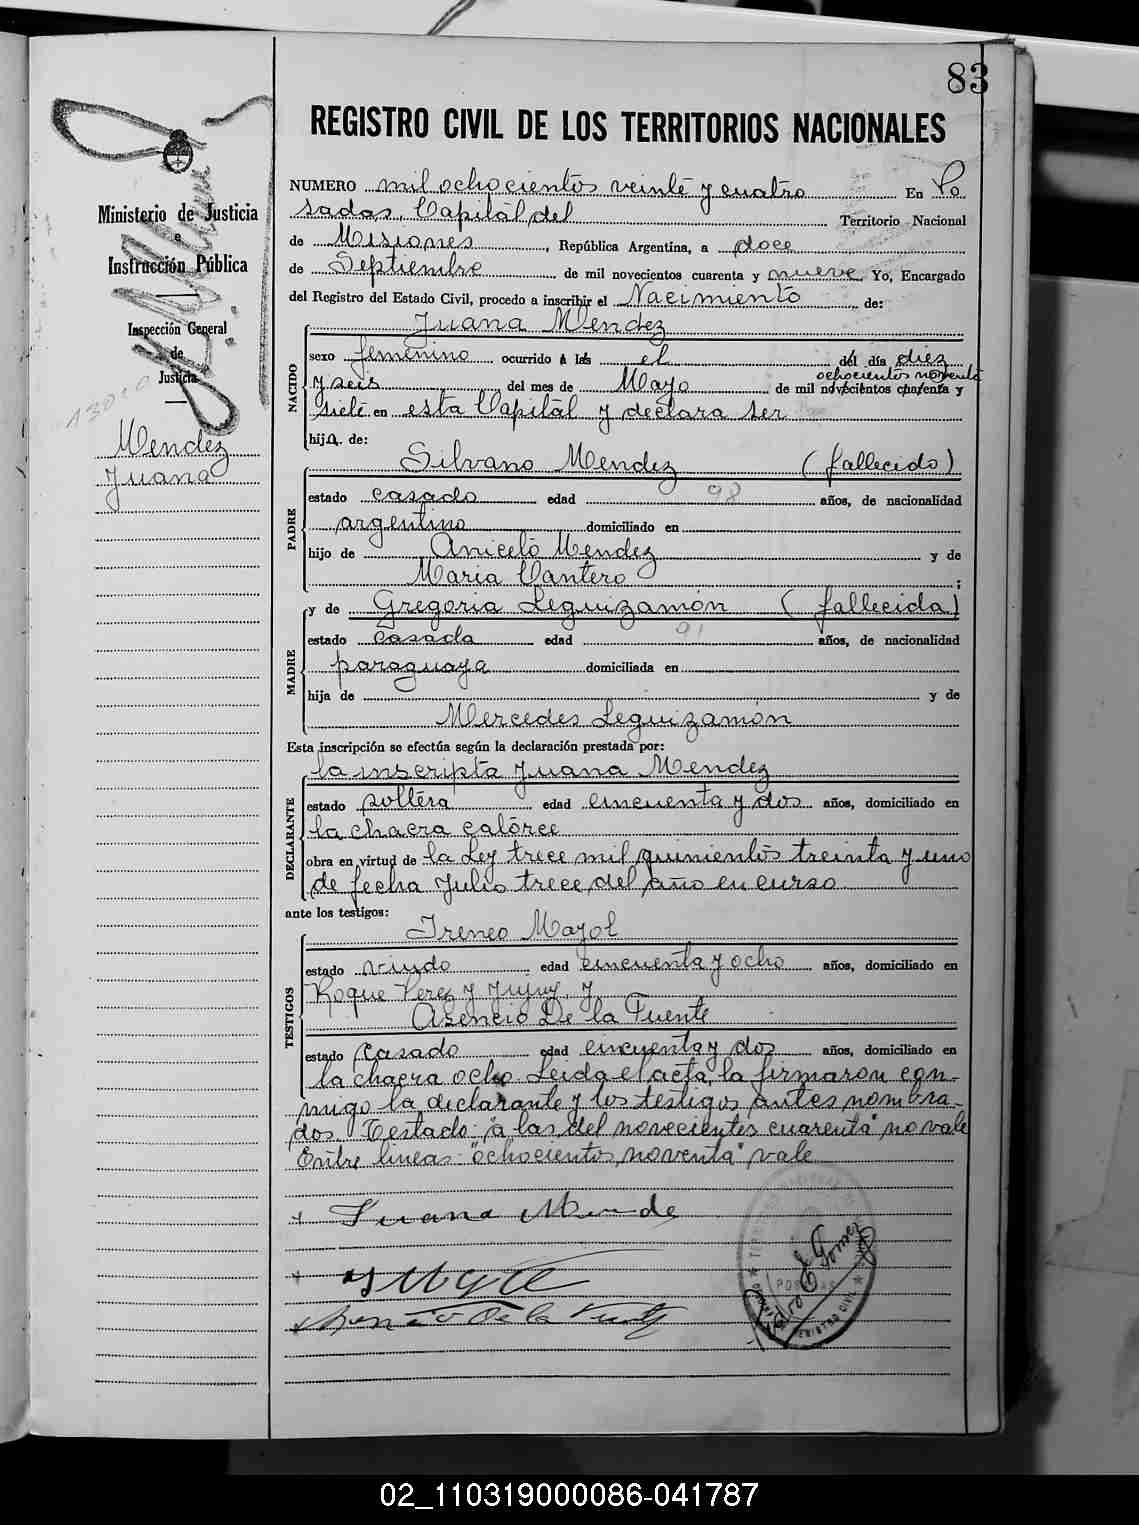 83
REGISTRO CIVIL DE LOS TERRITORIOS NACIONALES
Ministerio de Justicia
e
Instrucción Pública
Inspección General
de
Justicia
Mendez
Juana
NUMERO mil ochocientos veinte y cuatro En Po
sadas, Capital del Territorio Nacional
de Misiones, República Argentina, a doce
de Septiembre de mil novecientos cuarenta y nueve Yo, Encargado
del Registro del Estado Civil, procedo a inscribir el Nacimiento de:
NACIDO
Juana Mendez
sexo femenino ocurrido a las el del día diez
ochocientos noventa
y seis del mes de Mayo de mil novecientos cuarenta y
siete en esta Capital y declara ser
hija de:
PADRE
Silvano Mendez (fallecido)
estado casado edad 98 años, de nacionalidad
argentino domiciliado en
hijo de Aniceto Mendez y de
Maria Cantero ;
MADRE
y de Gregoria Leguizamón (fallecida)
estado casada edad 91 años, de nacionalidad
paraguaya domiciliada en
hija de y de
Mercedes Leguizamón
Esta inscripción se efectúa según la declaración prestada por:
DECLARANTE
la inscripta Juana Mendez
estado soltera edad cincuenta y dos años, domiciliado en
la chacra catorce
obra en virtud de la Ley trece mil quinientos treinta y uno
de fecha Julio trece del año en curso
ante los testigos:
TESTIGOS
Ireneo Mayol
estado viudo edad cincuenta y ocho años, domiciliado en
Roque Perez y Jujuy, y
Asencio De la Fuente
estado casado edad cincuenta y dos años, domiciliado en
la chacra ocho Leida el acta, la firmaron con-
migo la declarante y los testigos antes nombra-
dos. Testado: "a las, del novecientos cuarenta" no vale
Entre lineas: "ochocientos noventa" vale
Juana Mende
De la Fuente
POSADAS
REGISTRO CIVIL
02_110319000086-041787